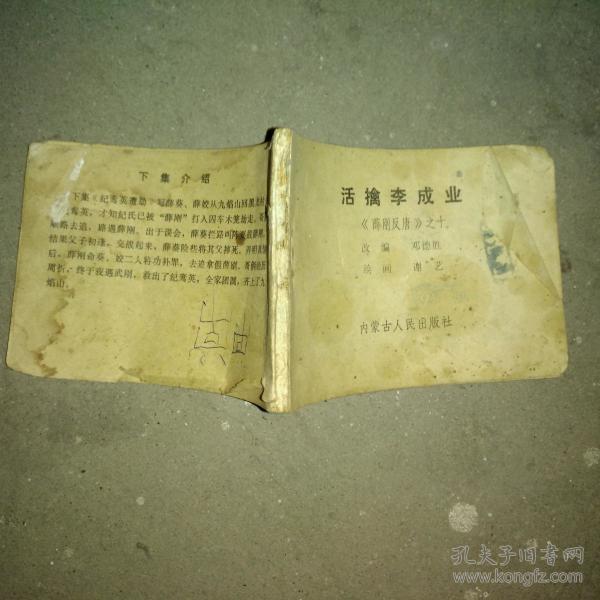 下集介绍
下集《纪鸾英遭劫》写薛葵、薛蛟从九焰山回黑龙村
鸾英，才知纪氏已被“薛刚”打入囚车木笼劫走。哥
顺路去追，路遇薛刚。出于误会，薛葵拦路
结果父子初逢，交战起来，薛葵险些将其父摔死。弄明真
后，薛刚命葵、蛟二人将功补罪，去追拿假薛刚。哥俩
周折，终于夜遇武刚，救出了纪鸾英，全家团圆，齐上了九
焰山。
活擒李成业
《薛刚反唐》之十
改编 邓德胜
绘画 谢艺
内蒙古人民出版社
孔夫子旧书网
www.kongfz.com